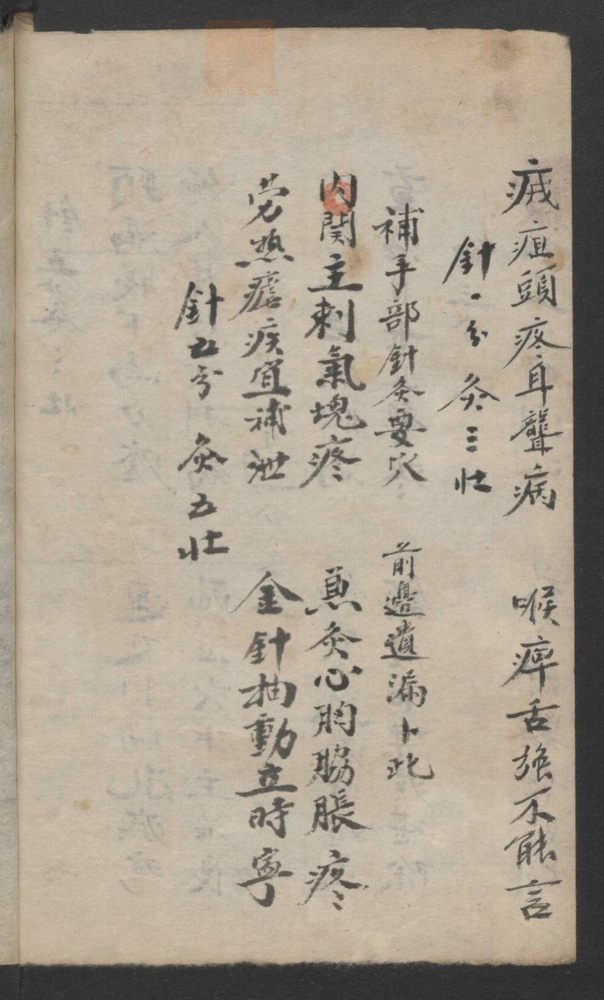 疳疽頭疼耳聾病　喉痺舌強不能言
針一分　灸三壮
補手部針灸要穴　前邊遺漏卜此
内関主刺氣塊疼　兼灸心胸脇脹疼
劳热瘧疾宜補泄　金針抽動立時寧
針五分　灸五壮